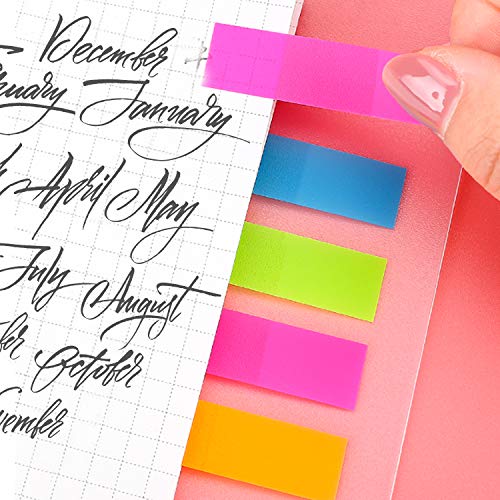 December
bruary January
April May
July August
ber October
vember